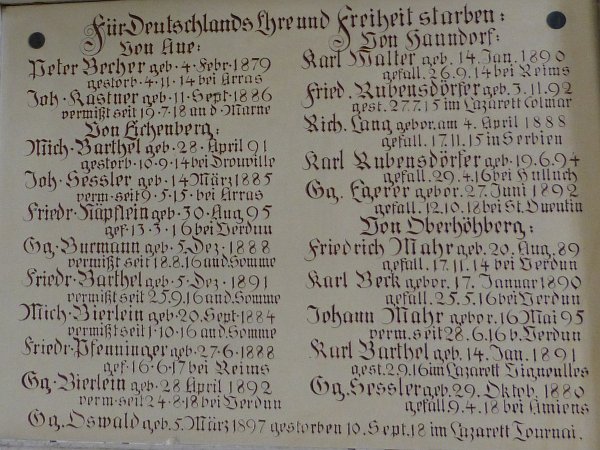 Für Deutschlands Ehre und Freiheit starben:
Von Aue:
Peter Becher geb. 4. Febr. 1879
gestorb. 4. 11. 14 bei Arras
Joh. Kastner geb. 11. Sept. 1886
vermißt seit 19. 7. 18 a. d. Marne
Von Eichenberg:
Mich. Barthel geb. 28. April 91
gestorb. 10. 9. 14 bei Drouville
Joh. Hessler geb. 14 März 1885
verm. seit 9. 5. 15 bei Arras
Friedr. Käpflein geb. 30. Aug. 95
gef. 13. 3. 16 bei Verdun
Gg. Burmann geb. 5. Dez. 1888
vermißt seit 18. 8. 16 and. Somme
Friedr. Barthel geb. 5. Dez. 1891
vermißt seit 25. 9. 16 and. Somme
Mich. Bierlein geb. 20. Sept. 1884
vermißt seit 1. 10. 16 and. Somme
Friedr. Pfenninger geb. 27. 6. 1888
gef. 16. 6. 17 bei Reims
Gg. Bierlein geb. 28 April 1892
verm. seit 24. 8. 18 bei Verdun
Von Hanndorf:
Karl Walter geb. 14. Jan. 1890
gefall. 26. 9. 14 bei Reims
Fried. Rubensdörfer geb. 3. 11. 92
gest. 27. 7. 15 im Lazarett Colmar
Rich. Lang gebor. am 4. April 1888
gefall. 17. 11. 15 in Serbien
Karl Rubensdörfer geb. 19. 6. 94
gefall. 29. 4. 16 bei Hulluch
Gg. Egerer gebor. 27. Juni 1892
gefall. 12. 10. 18 bei St. Quentin
Von Oberhöhberg:
Friedrich Mahr geb. 20. Aug. 89
gefall. 17. 11. 14 bei Verdun
Karl Beck gebor. 17. Januar 1890
gefall. 25. 5. 16 bei Verdun
Johann Mahr gebor. 16 Mai 95
verm. seit 28. 6. 16 b. Verdun
Karl Barthel geb. 14. Jan. 1891
gest. 2. 9. 16 im Lazarett Vigneulles
Gg. Hessler geb. 29. Oktob. 1880
gefall. 9. 4. 18 bei Amiens
Gg. Oswald geb. 5. März 1897 gestorben 10. Sept. 18 im Lazarett Tournai.